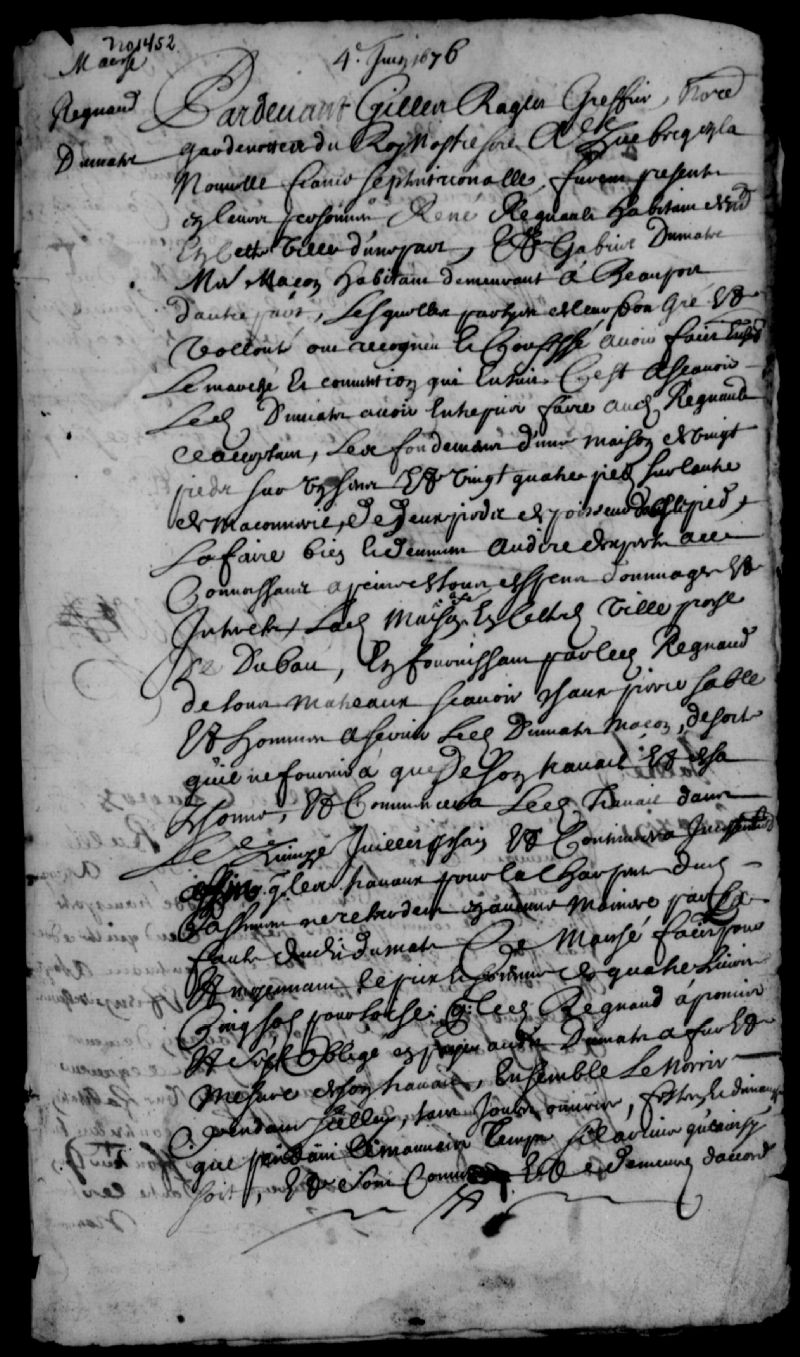 No 1452
Marché
Regnaud
Dumatre
4e Juin 1676
Pardevant Gilles Rageot Greffier, Nore
gardenottes du Roy Nostre sire A Quebecq en la
Nouvelle france septentrionalle, furent presents
en leurs personnes René Regnault habitant
En cette Ville d'une part, Et Gabriel Dumatre
Me Macon habitant demeurant à Beauport
d'autre part, Lesquelles partyes de leur bon gré Et
Vollonté ont recogneu et Confessé avoir fait
Le marché Et convention qui Ensuit C'est Asscavoir
Led Dumatre avoir Entrepris faire aud Regnault
ce acceptant, Les fondements d'une maison de vingt
pieds sur un sens Et vingt quatre pieds sur l'autre
de maconnerie, de deux pieds despoisseur
La faire bien et deument Au dire d'experts a ce
Connoissant a peine de tous despens dommages Et
Interets, Lad Maison En cette Ville
En fournissant par led Regnaud
de tous materiaux scavoir chaux pierre sable
Et hommes A servir led Dumatre macon, de sorte
qu'il ne fournira que de son travail Et de sa
personne, Et Commencera Led travail dans
Le quinze Juillet prochain Et Continuera
les travaux pour la Charpente dud
Bastiment ne retardent en aucune maniere par la
faute dudit dumatre Ce Marché fait pour
Et moyennant le prix et somme de quatre Livres
Cinq sols pour toise, q led Regnaud à promis
Et s'est Obligé en payer aud Dumatre a fur Et
Mesure de son travail, Ensemble Le Nourrir
pendant Icelluy, tant Jours ouvriers, festes et dimanches
que pendant le mauvais Temps sil arrive qu'ainsy
soit, Et demeurés d'accord